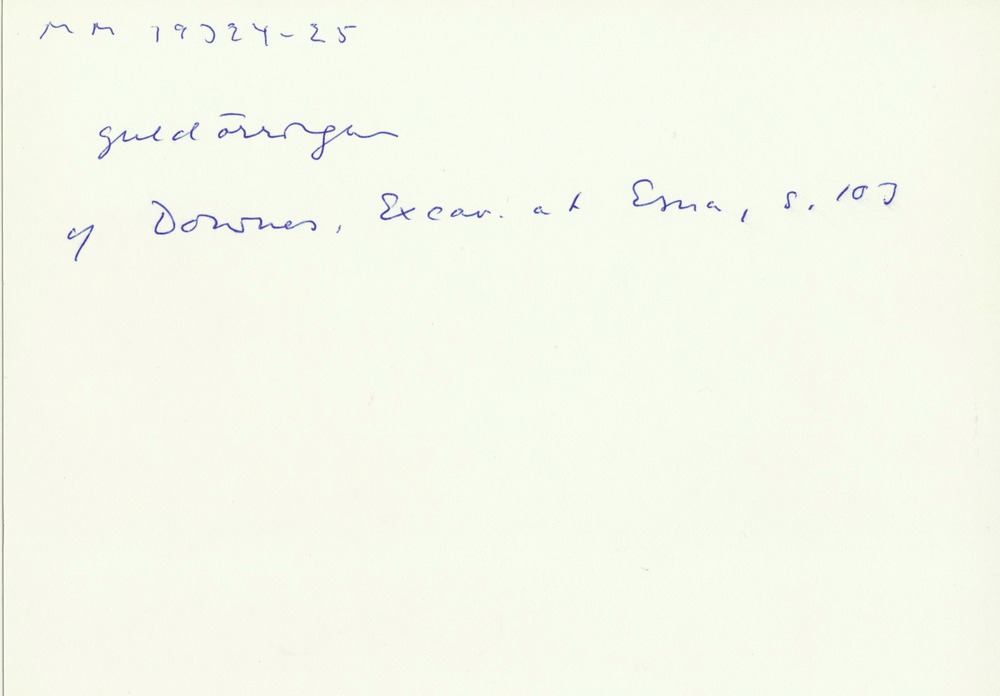 MM 19324-25
guldörringar
cf Downes, Excav. at Esna, s. 103